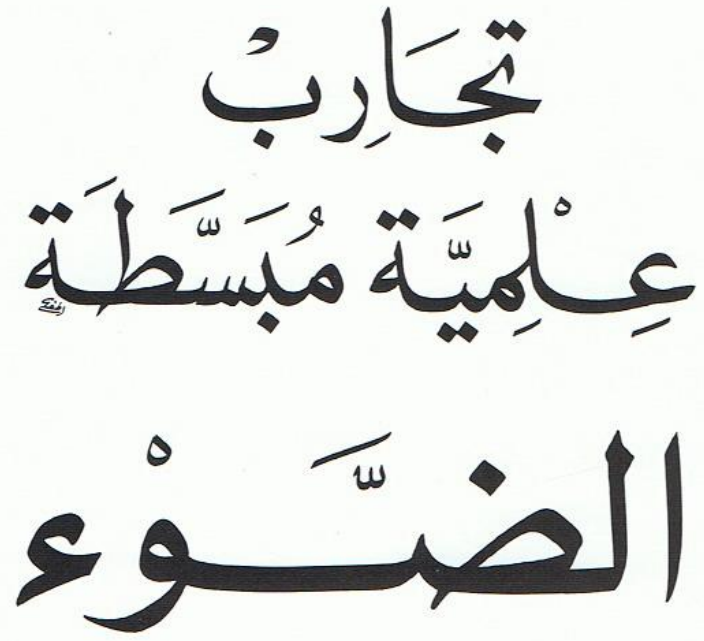 تَجَارِبْ
عِلْمِيَّة مُبَسَّطَة
الضَّوْء